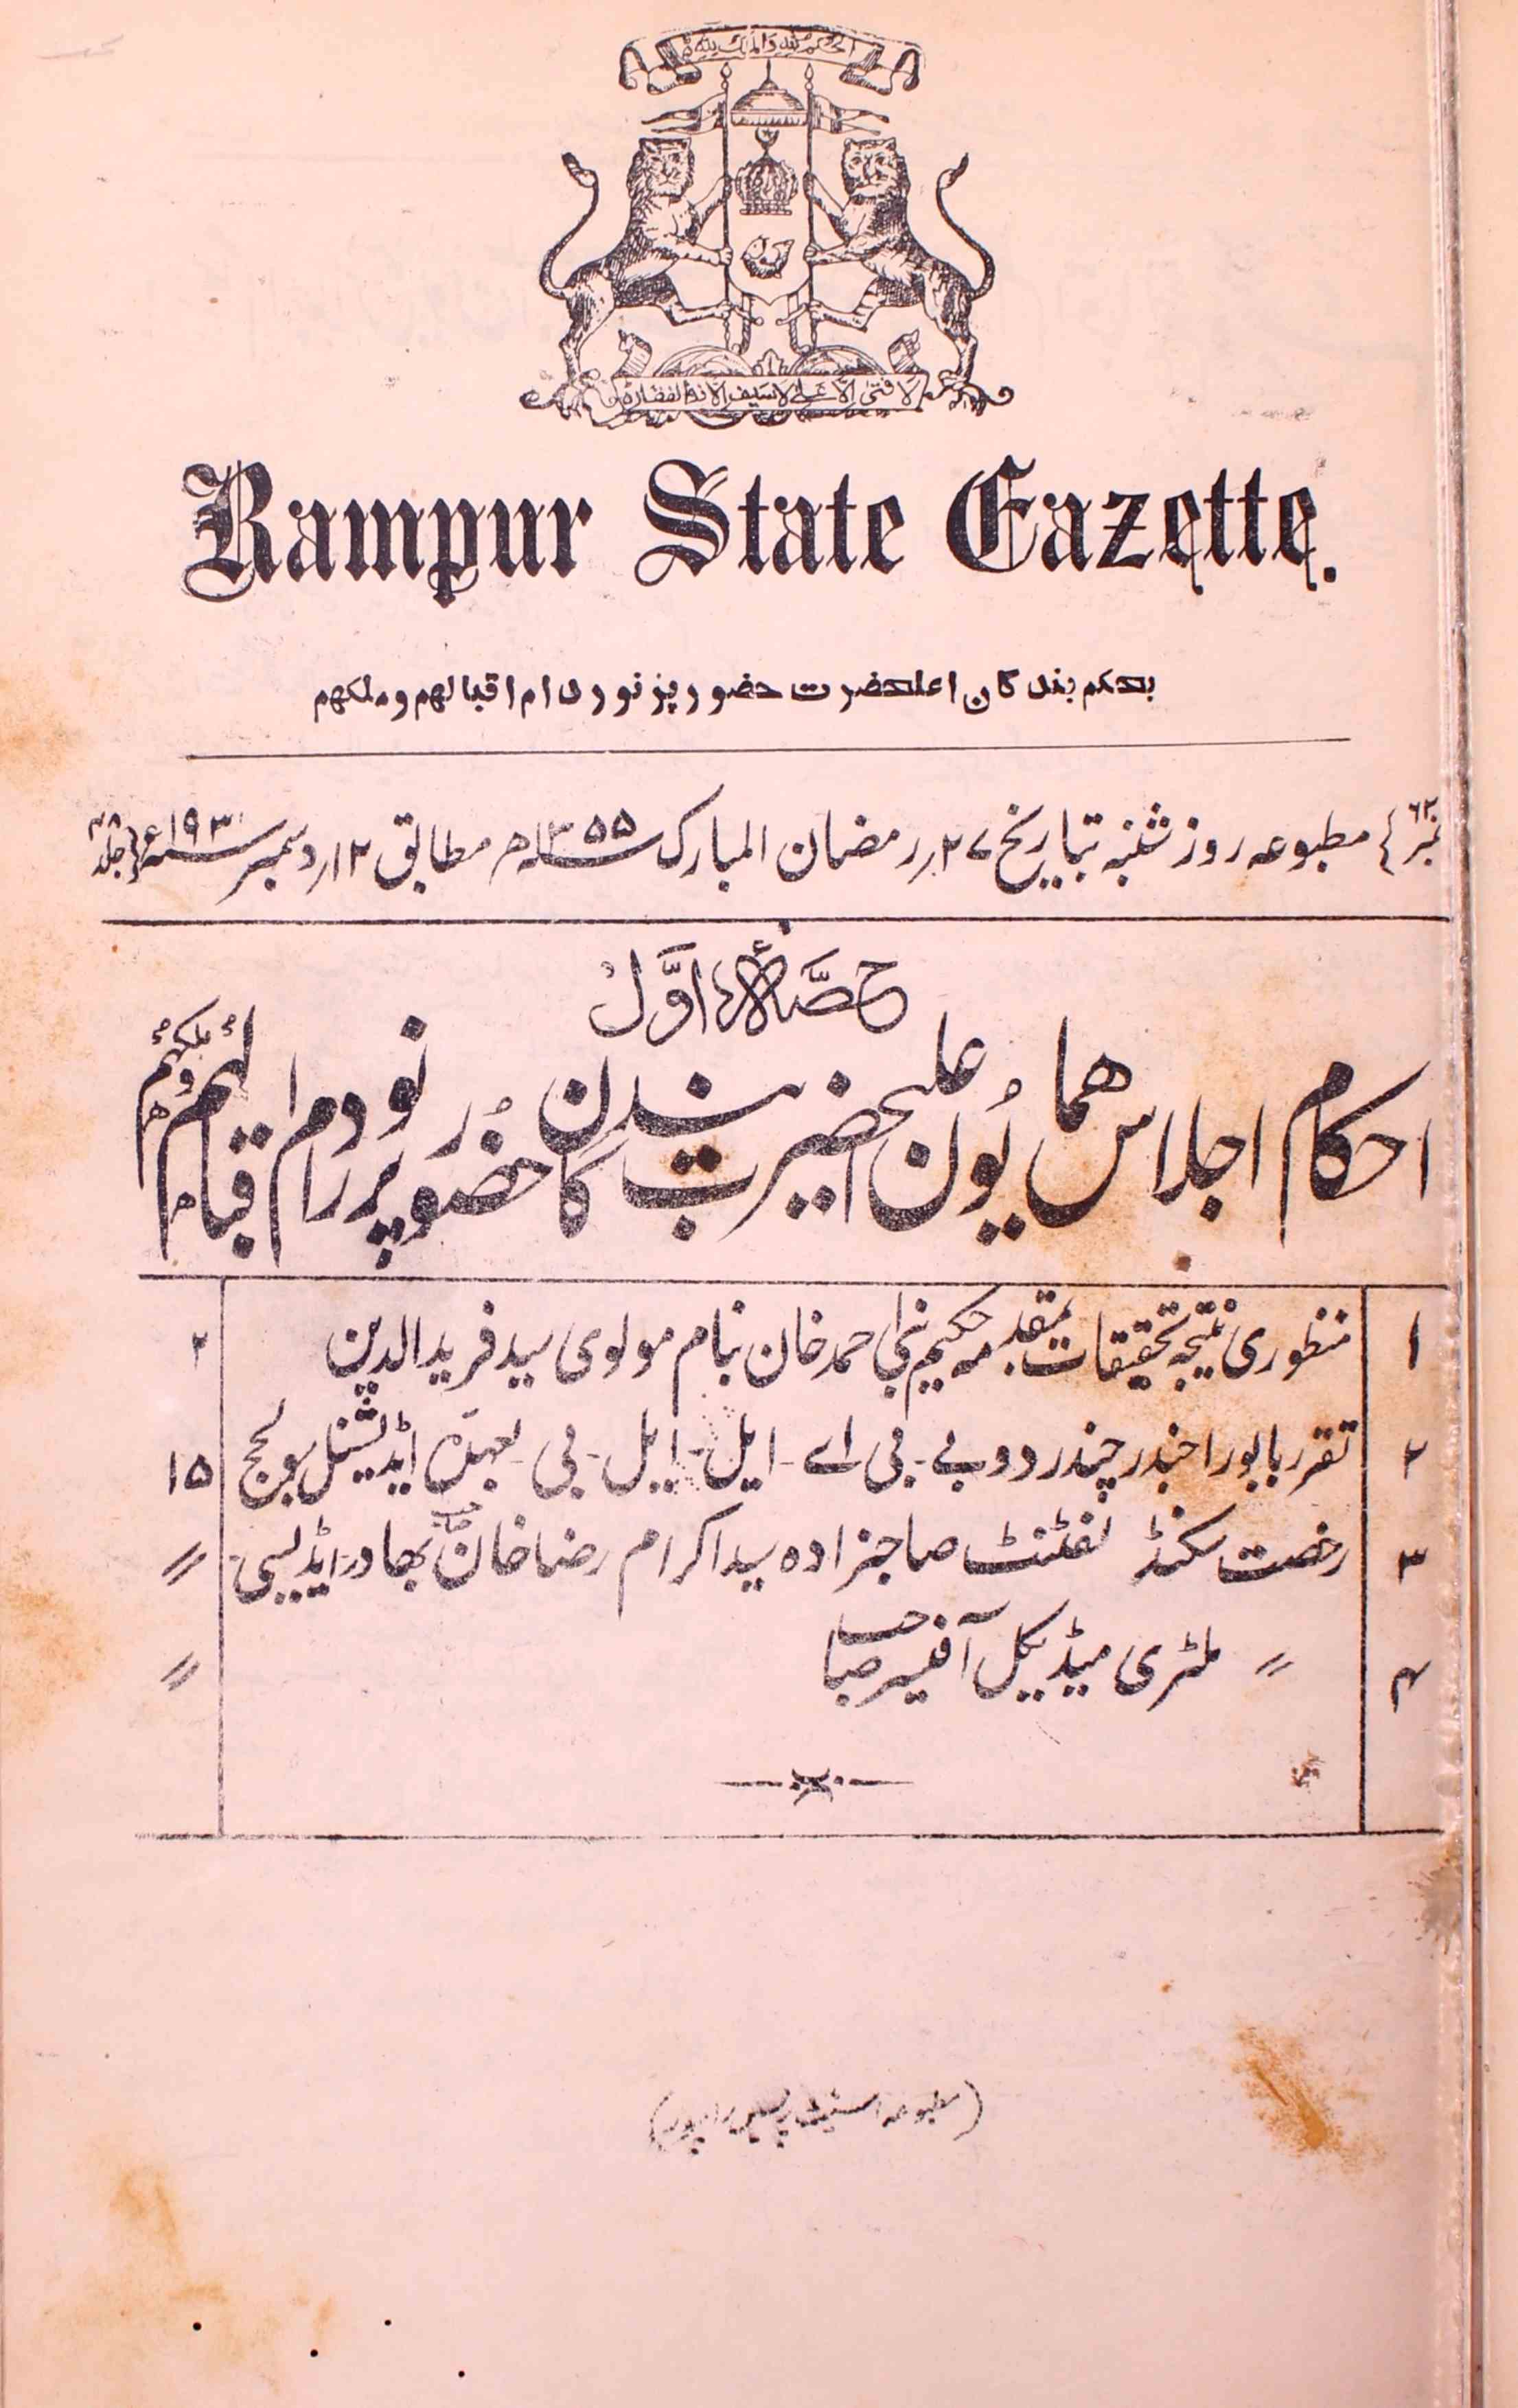 الحکم للہ والملک للہ
لا فتیٰ الا علی لا سیف الا ذوالفقار
Rampur State Gazette.
بحکم بندگان اعلیحضرت حضور پرنور دام اقبالهم و ملکهم
نمبر ۶۲ مطبوعہ روز شنبہ بتاریخ ۲۷ رمضان المبارک ۱۳۵۵ھ م مطابق ۱۲ دسمبر ۱۹۳ء جلد
حصّۂ اوّل
احکام اجلاس همایُون اعلیحضرت بندگان حضُور پُرنور دام اقبالهُم و ملکهُم
۱ منظوری نتیجہ تحقیقات بمقدمہ حکیم احمد خان بنام مولوی سید فریدالدین ۲
۲ تقرر بابو راجندر چندر دوبے - بی اے - ایل - ایل - بی بعہدہ ایڈیشنل سول جج ۱۵
۳ رخصت سکنڈ لفٹننٹ صاحبزادہ سید اکرام رضا خان صاحب بهادر ایڈیسی 〃
۴ 〃 ملٹری میڈیکل آفیسر صاحب 〃
(مطبوعہ اسٹیٹ پریس رامپور)